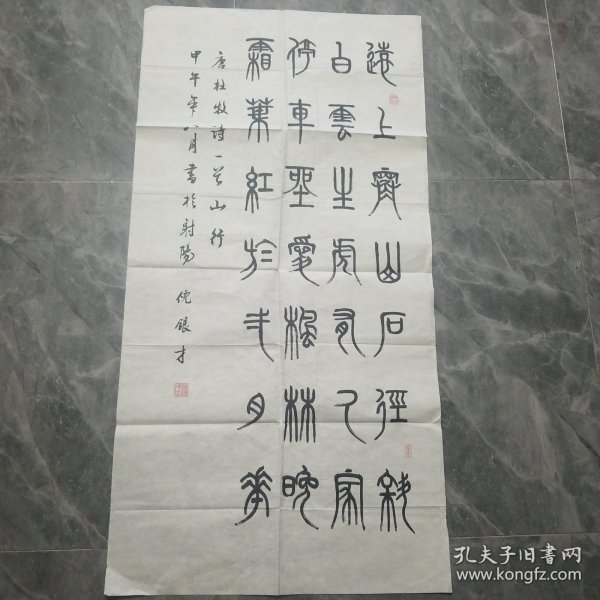 遠上寒山石徑斜
白雲生處有人家
停車坐愛楓林晚
霜葉紅於二月花
唐杜牧詩一首山行
甲午年八月書於射陽 倪銀才
孔夫子旧书网
www.kongfz.com